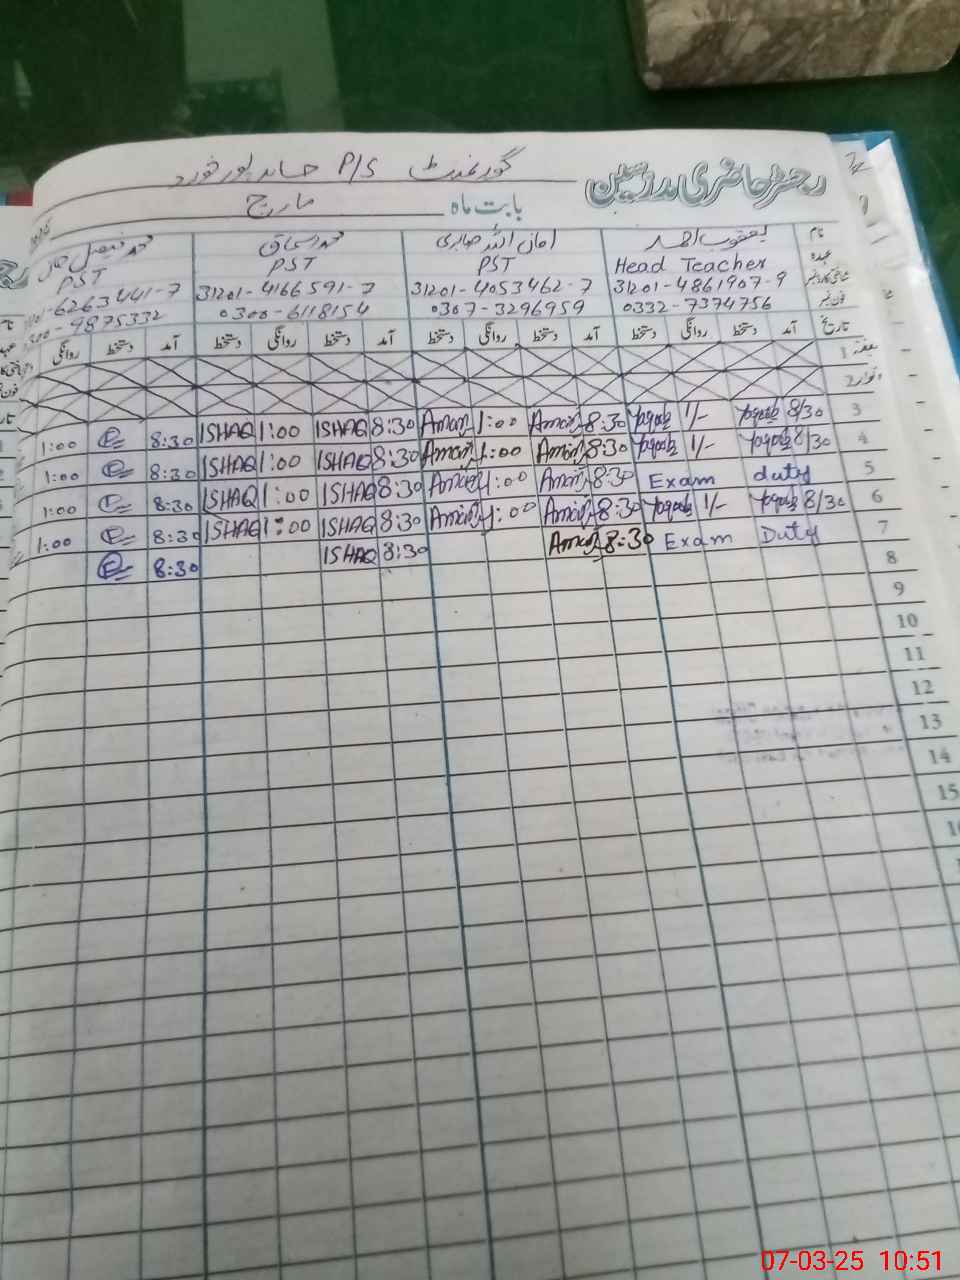 رجسٹر حاضری مدرسین گورنمنٹ P/S حامد پور خورد
بابت ماہ مارچ
نام یعقوب احمد امان اللہ صابری محمد اسحاق محمد فیصل
عہدہ Head Teacher PST PST PST
31201-4861907-9 31201-4053462-7 31201-4166591-7 6263441-7
فون نمبر 0332-7374756 0307-3296959 0300-6118154 9875332
تاریخ آمد دستخط روانگی دستخط آمد دستخط روانگی دستخط آمد دستخط روانگی دستخط آمد دستخط روانگی
1 ہفتہ
2 اتوار
3 8/30 Yaqoob 1/- Yaqoob 8:30 Aman 1:00 Aman 8:30 ISHAQ 1:00 ISHAQ 8:30 1:00
4 8/30 Yaqoob 1/- Yaqoob 8:30 Aman 1:00 Aman 8:30 ISHAQ 1:00 ISHAQ 8:30 1:00
5 Exam duty 8:30 Aman 1:00 Aman 8:30 ISHAQ 1:00 ISHAQ 8:30 1:00
6 8/30 Yaqoob 1/- Yaqoob 8:30 Aman 1:00 Aman 8:30 ISHAQ 1:00 ISHAQ 8:30 1:00
7 Exam Duty 8:30 Aman 8:30 ISHAQ 8:30
8
9
10
11
12
13
14
15
07-03-25 10:51